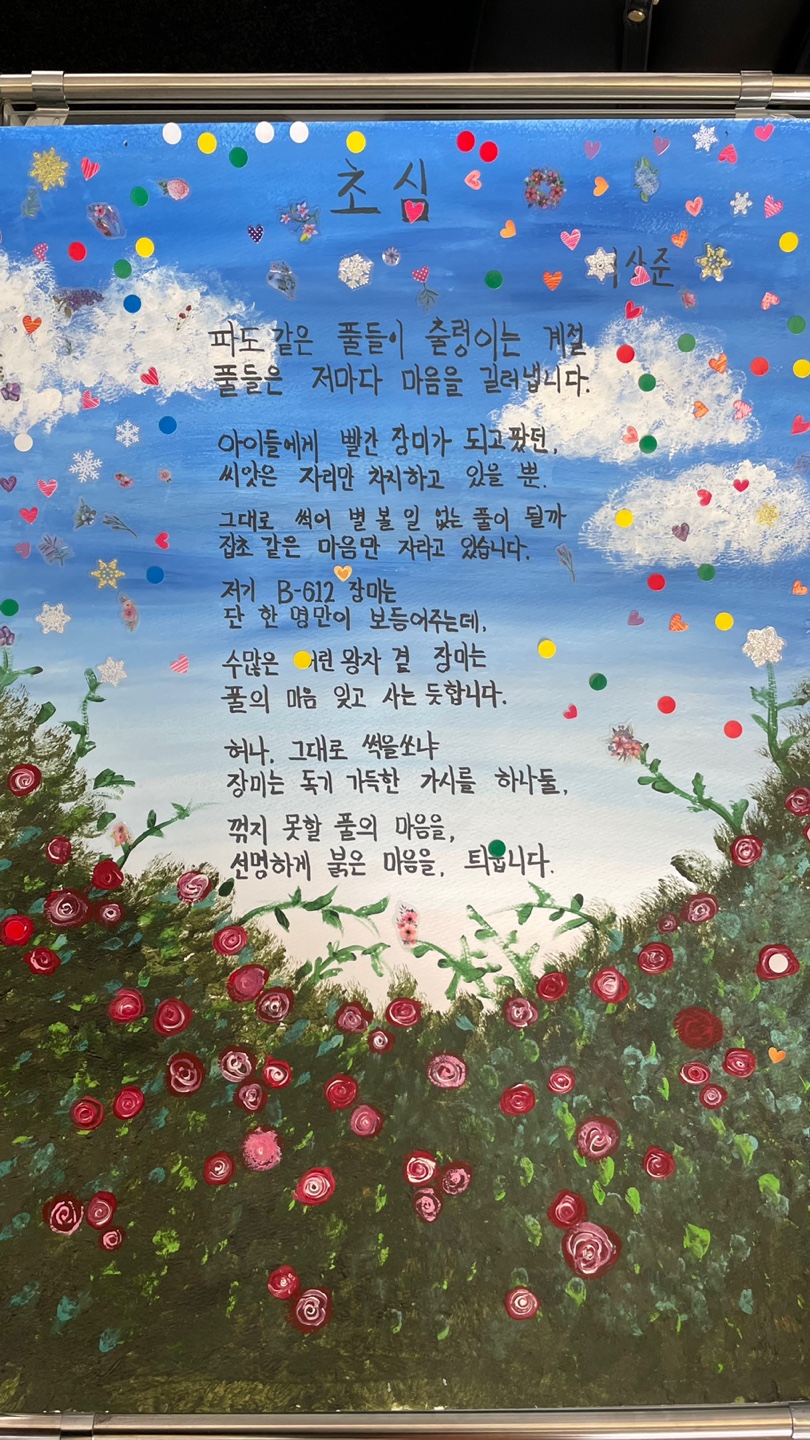 초심
상준
파도 같은 풀들이 출렁이는 계절
풀들은 저마다 마음을 길러냅니다.
아이들에게 빨간 장미가 되고팠던,
씨앗은 자리만 차지하고 있을 뿐.
그대로 썩어 별 볼 일 없는 풀이 될까
잡초 같은 마음만 자라고 있습니다.
저기 B-612 장미는
단 한 명만이 보듬어주는데,
수많은 어린 왕자 곁 장미는
풀의 마음 잊고 사는 듯합니다.
허나, 그대로 썩을쏘냐
장미는 독기 가득한 가시를 하나둘,
꺾지 못할 풀의 마음을,
선명하게 붉은 마음을, 틔웁니다.